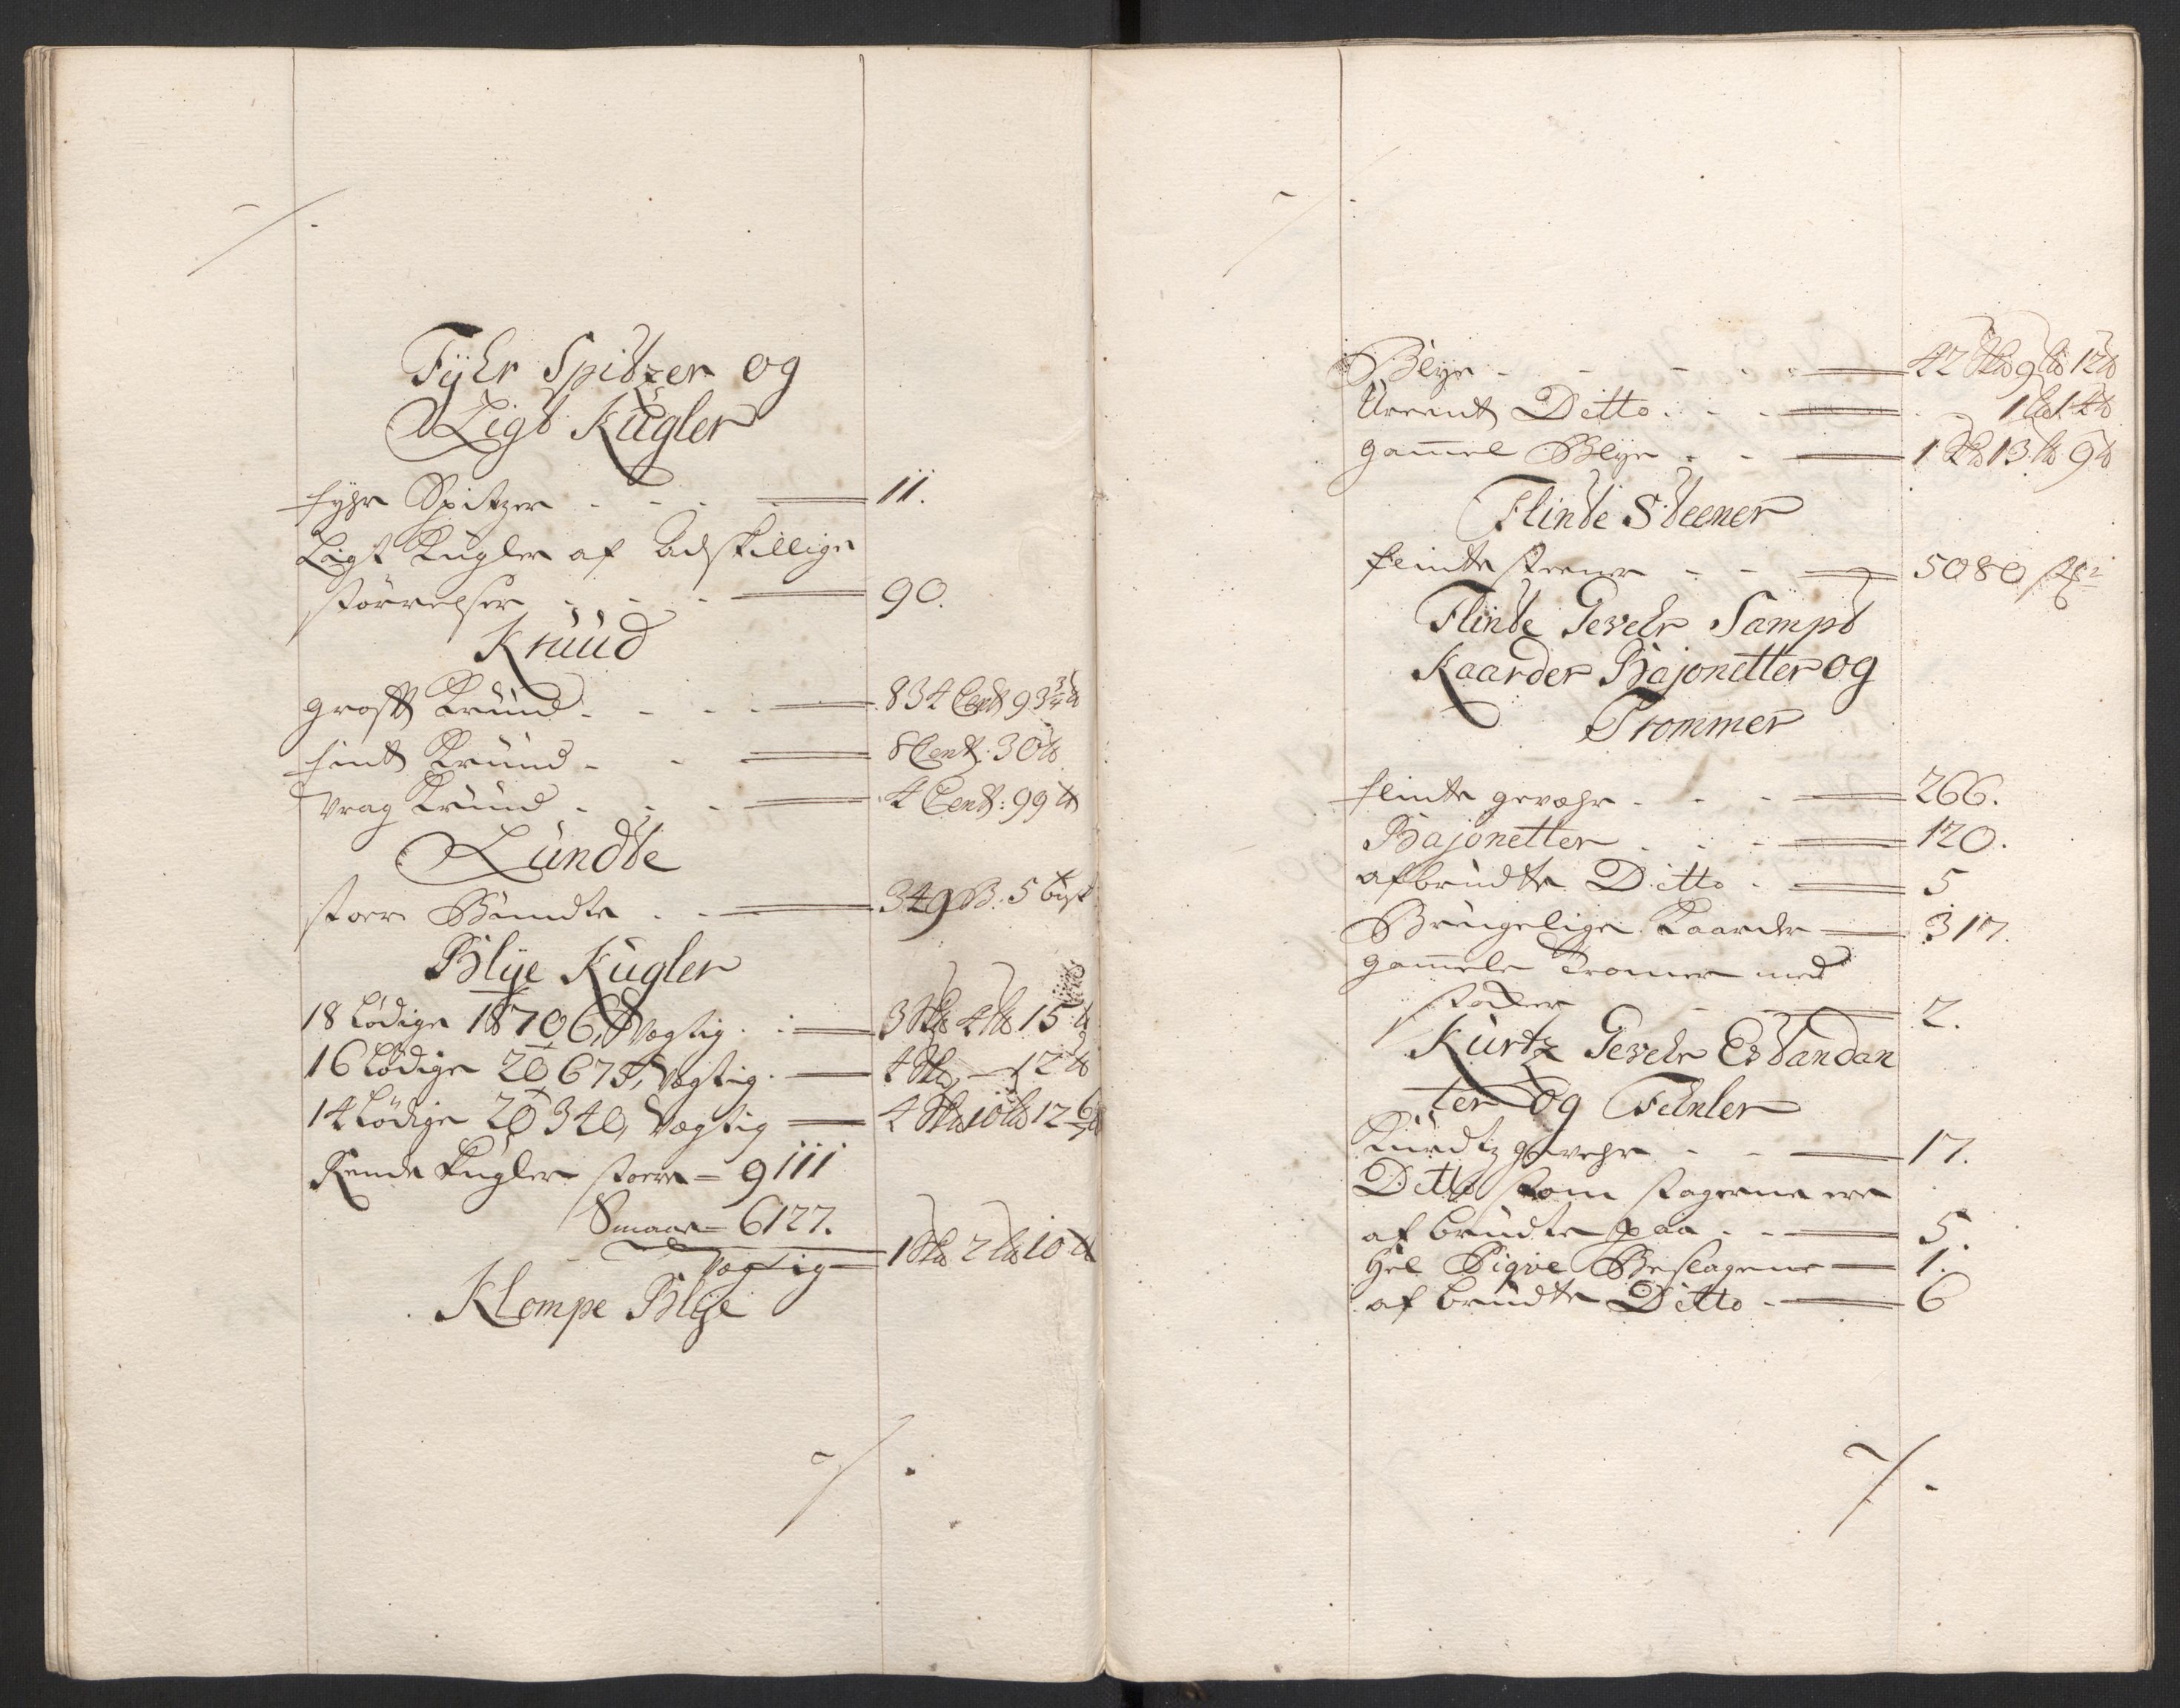 Fyhr Spitzer og
Ligt Kugler
fyhr Spitzer 11.
Ligt Kugler af Adskillige
størrelser 90.
Kruud
grofft Kruud 834 Cent 93¾ ℔
fint Kruud 8 Cent: 30 ℔
vrag Kruud 4 Cent: 99 ℔
Lundte
store Bundte 349 B: 5 bugt
Blye Kugler
18 Lødige 18706, Vegtig 3 S℔ 4 L℔ 15 ℔
16 Lødige 20675, Vegtig 4 S℔ 12 ℔
14 Lødige 20340, Vegtig 4 S℔ 10 L℔ 12 ℔
Rende Kugler store = 9111
Smaae = 6127.
Vegtig 1 S℔ 2 L℔ 10 ℔
Klompe Blye
Blye 42 S℔ 9 L℔ 12 ℔
Ureent Ditto 1 L℔ 14 ℔
gammel Blye 1 S℔ 13 L℔ 9 ℔
Flinte Steener
flinte steener 5080 st:
Flinte Gevehr Sampt
Kaarder Bajonetter og
Trommer
flinte gevehr 266.
Bajonetter 120.
afbrudte Ditto 5
Brugelige Kaarder 317.
gammele Tromer med
stocker 2.
Kurtz Gevehr Estandan
ter og Fehnler
Kurdtz gevehr 17.
Ditto som stagerne ere
af brudte paa 5.
Hel Pigve Beslagene 1.
af brudte Ditto 6